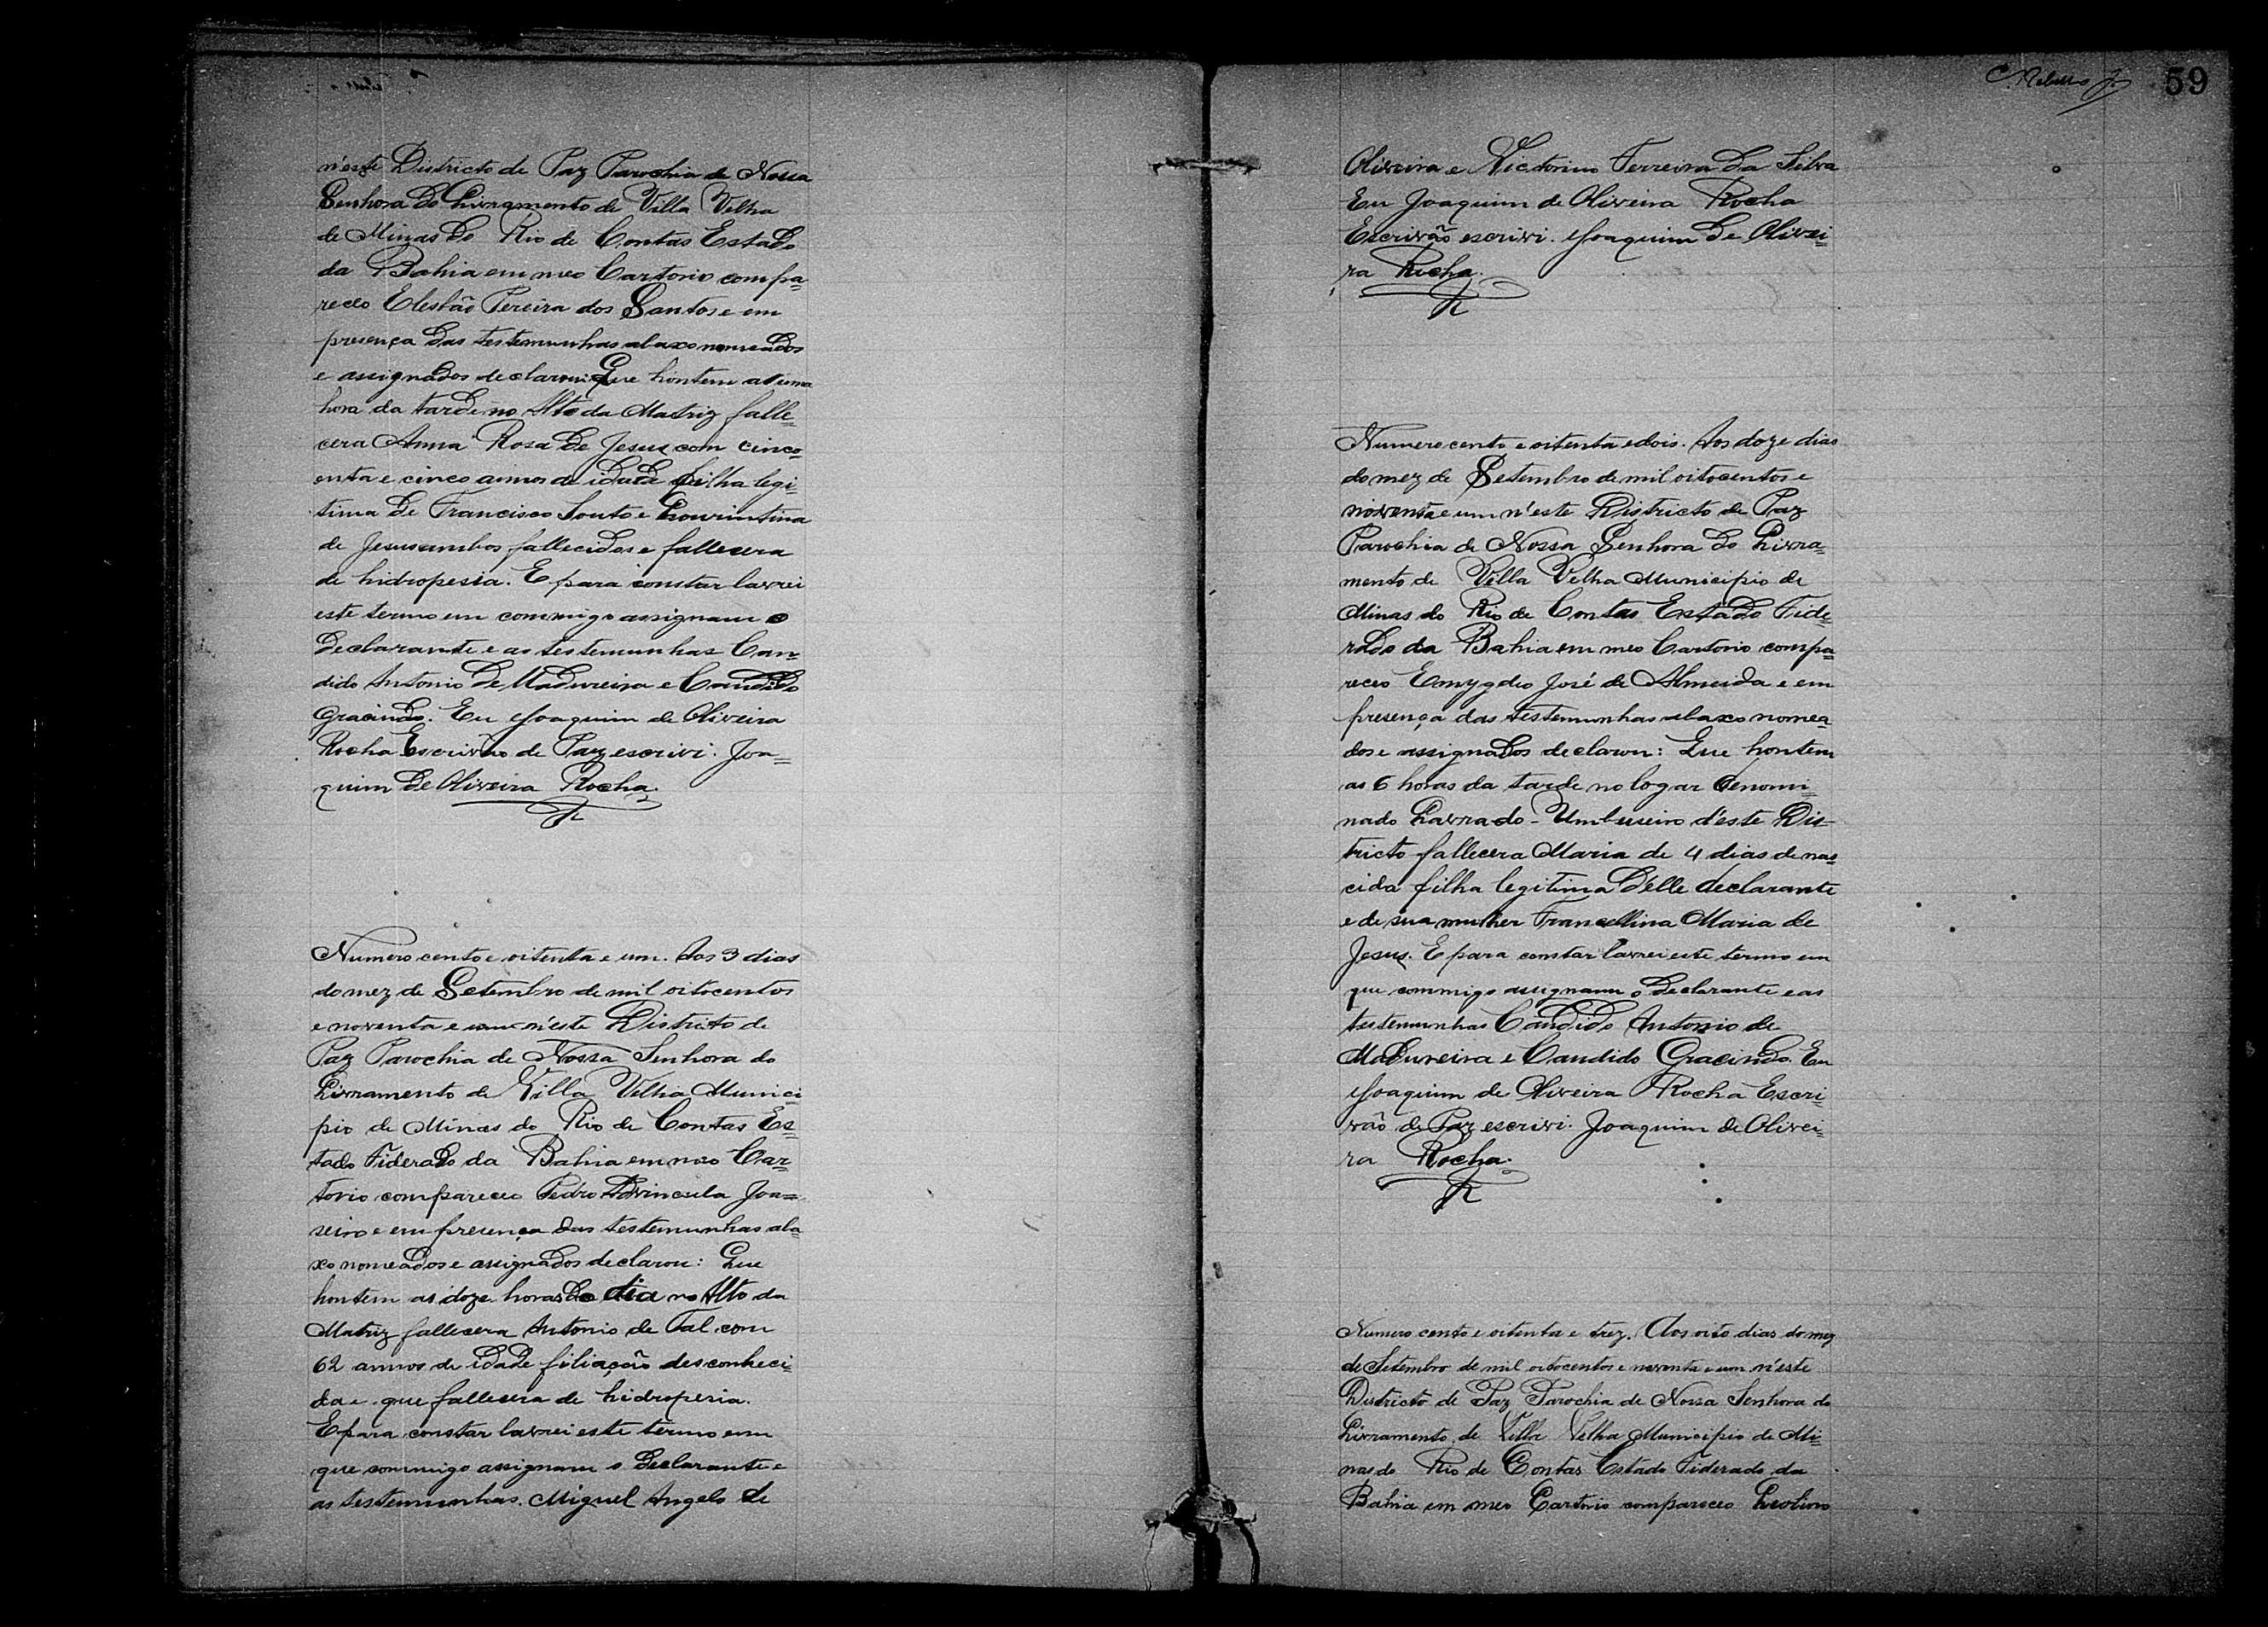 n'este Districto de Paz Parochia de Nossa
Senhora do Livramento de Villa Velha
de Minas do Rio de Contas Estado
da Bahia em meo Cartorio compa=
receo Elesbão Pereira dos Santos e em
presença das testemunhas abaxo nomeados
e assignados declarou: Que hontem a uma
hora da tarde no Alto da Matriz falle=
cera Anna Rosa de Jesus com cinco=
enta e cinco annos de idade filha legi=
tima de Francisco Souto e
de Jesus ambos fallecidos e fallecera
de hidropesia. E para constar lavrei
este termo em commigo assignam o
declarante e as testemunhas Can=
dido Antonio de Madureira e Candido
Gracindo. Eu Joaquim de Oliveira
Rocha Escrivão de Paz escrivi. Joa=
quim de Oliveira Rocha.
R
Numero cento e oitenta e um. Aos 3 dias
do mez de Setembro de mil oitocentos
e noventa e um n'este Districto de
Paz Parochia de Nossa Senhora do
Livramento de Villa Velha Munici
pio de Minas do Rio de Contas Es=
tado Federado da Bahia em meo Car=
torio compareceo Pedro Joa=
seiro e em presença das testemunhas aba=
xo nomeados e assignados declarou: Que
hontem as doze horas do dia no Alto da
Matriz fallecera Antonio de Tal com
62 annos de idade filiação desconheci=
da e que fallecera de hidropesia.
E para constar lavrei este termo em
que commigo assignam o declarante e
as testemunhas. Miguel Angelo de
59
Oliveira e Victorino Ferreira da Silva
Eu Joaquim de Oliveira Rocha
Escrivão escrivi. Joaquim de Olivei=
ra Rocha.
R
Numero cento e oitenta e dois. Aos doze dias
do mez de Setembro de mil oitocentos e
noventa e um n'este Districto de Paz
Parochia de Nossa Senhora do Livra=
mento de Villa Velha Municipio de
Minas do Rio de Contas Estado Fede=
rado da Bahia em meo Cartorio compa=
receo Emygdio José de Almeida e em
presença das testemunhas abaxo nomea=
dos e assignados declarou: Que hontem
as 6 horas da tarde no logar denomi=
nado Lavrado-Umbuseiro d'este Dis=
tricto fallecera Maria de 4 dias de nas=
cida filha legitima d'elle declarante
e de sua mulher Francellina Maria de
Jesus. E para constar lavrei este termo em
que commigo assignam o declarante e as
testemunhas Candido Antonio de
Madureira e Candido Gracindo. Eu
Joaquim de Oliveira Rocha Escri=
vão de Paz escrivi. Joaquim de Olivei=
ra Rocha.
R
Numero cento e oitenta e trez. Aos oito dias do mez
de Setembro de mil oitocentos e noventa e um n'este
Districto de Paz Parochia de Nossa Senhora do
Livramento de Villa Velha Municipio de Mi=
nas do Rio de Contas Estado Federado da
Bahia em meo Cartorio compareceo